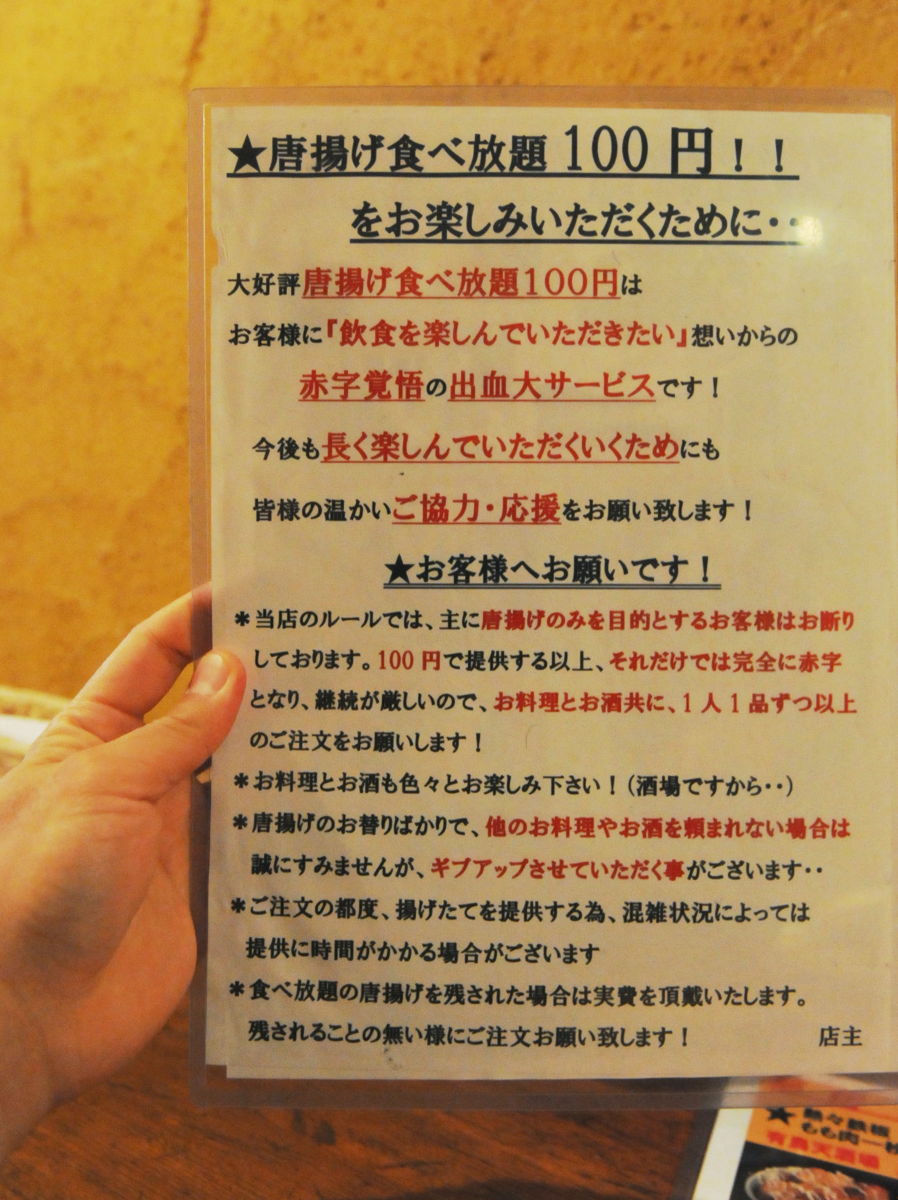 ★唐揚げ食べ放題 100 円！！
をお楽しみいただくために・・
大好評唐揚げ食べ放題100円は
お客様に『飲食を楽しんでいただきたい』想いからの
赤字覚悟の出血大サービスです！
今後も長く楽しんでいただくいくためにも
皆様の温かいご協力・応援をお願い致します！
★お客様へお願いです！
＊当店のルールでは、主に唐揚げのみを目的とするお客様はお断り
しております。100 円で提供する以上、それだけでは完全に赤字
となり、継続が厳しいので、お料理とお酒共に、1 人 1 品ずつ以上
のご注文をお願いします！
＊お料理とお酒も色々とお楽しみ下さい！（酒場ですから・・）
＊唐揚げのお替りばかりで、他のお料理やお酒を頼まれない場合は
誠にすみませんが、ギブアップさせていただく事がございます・・
＊ご注文の都度、揚げたてを提供する為、混雑状況によっては
提供に時間がかかる場合がございます
＊食べ放題の唐揚げを残された場合は実費を頂戴いたします。
残されることの無い様にご注文お願い致します！ 店主
★熱々鉄板
もも肉一枚